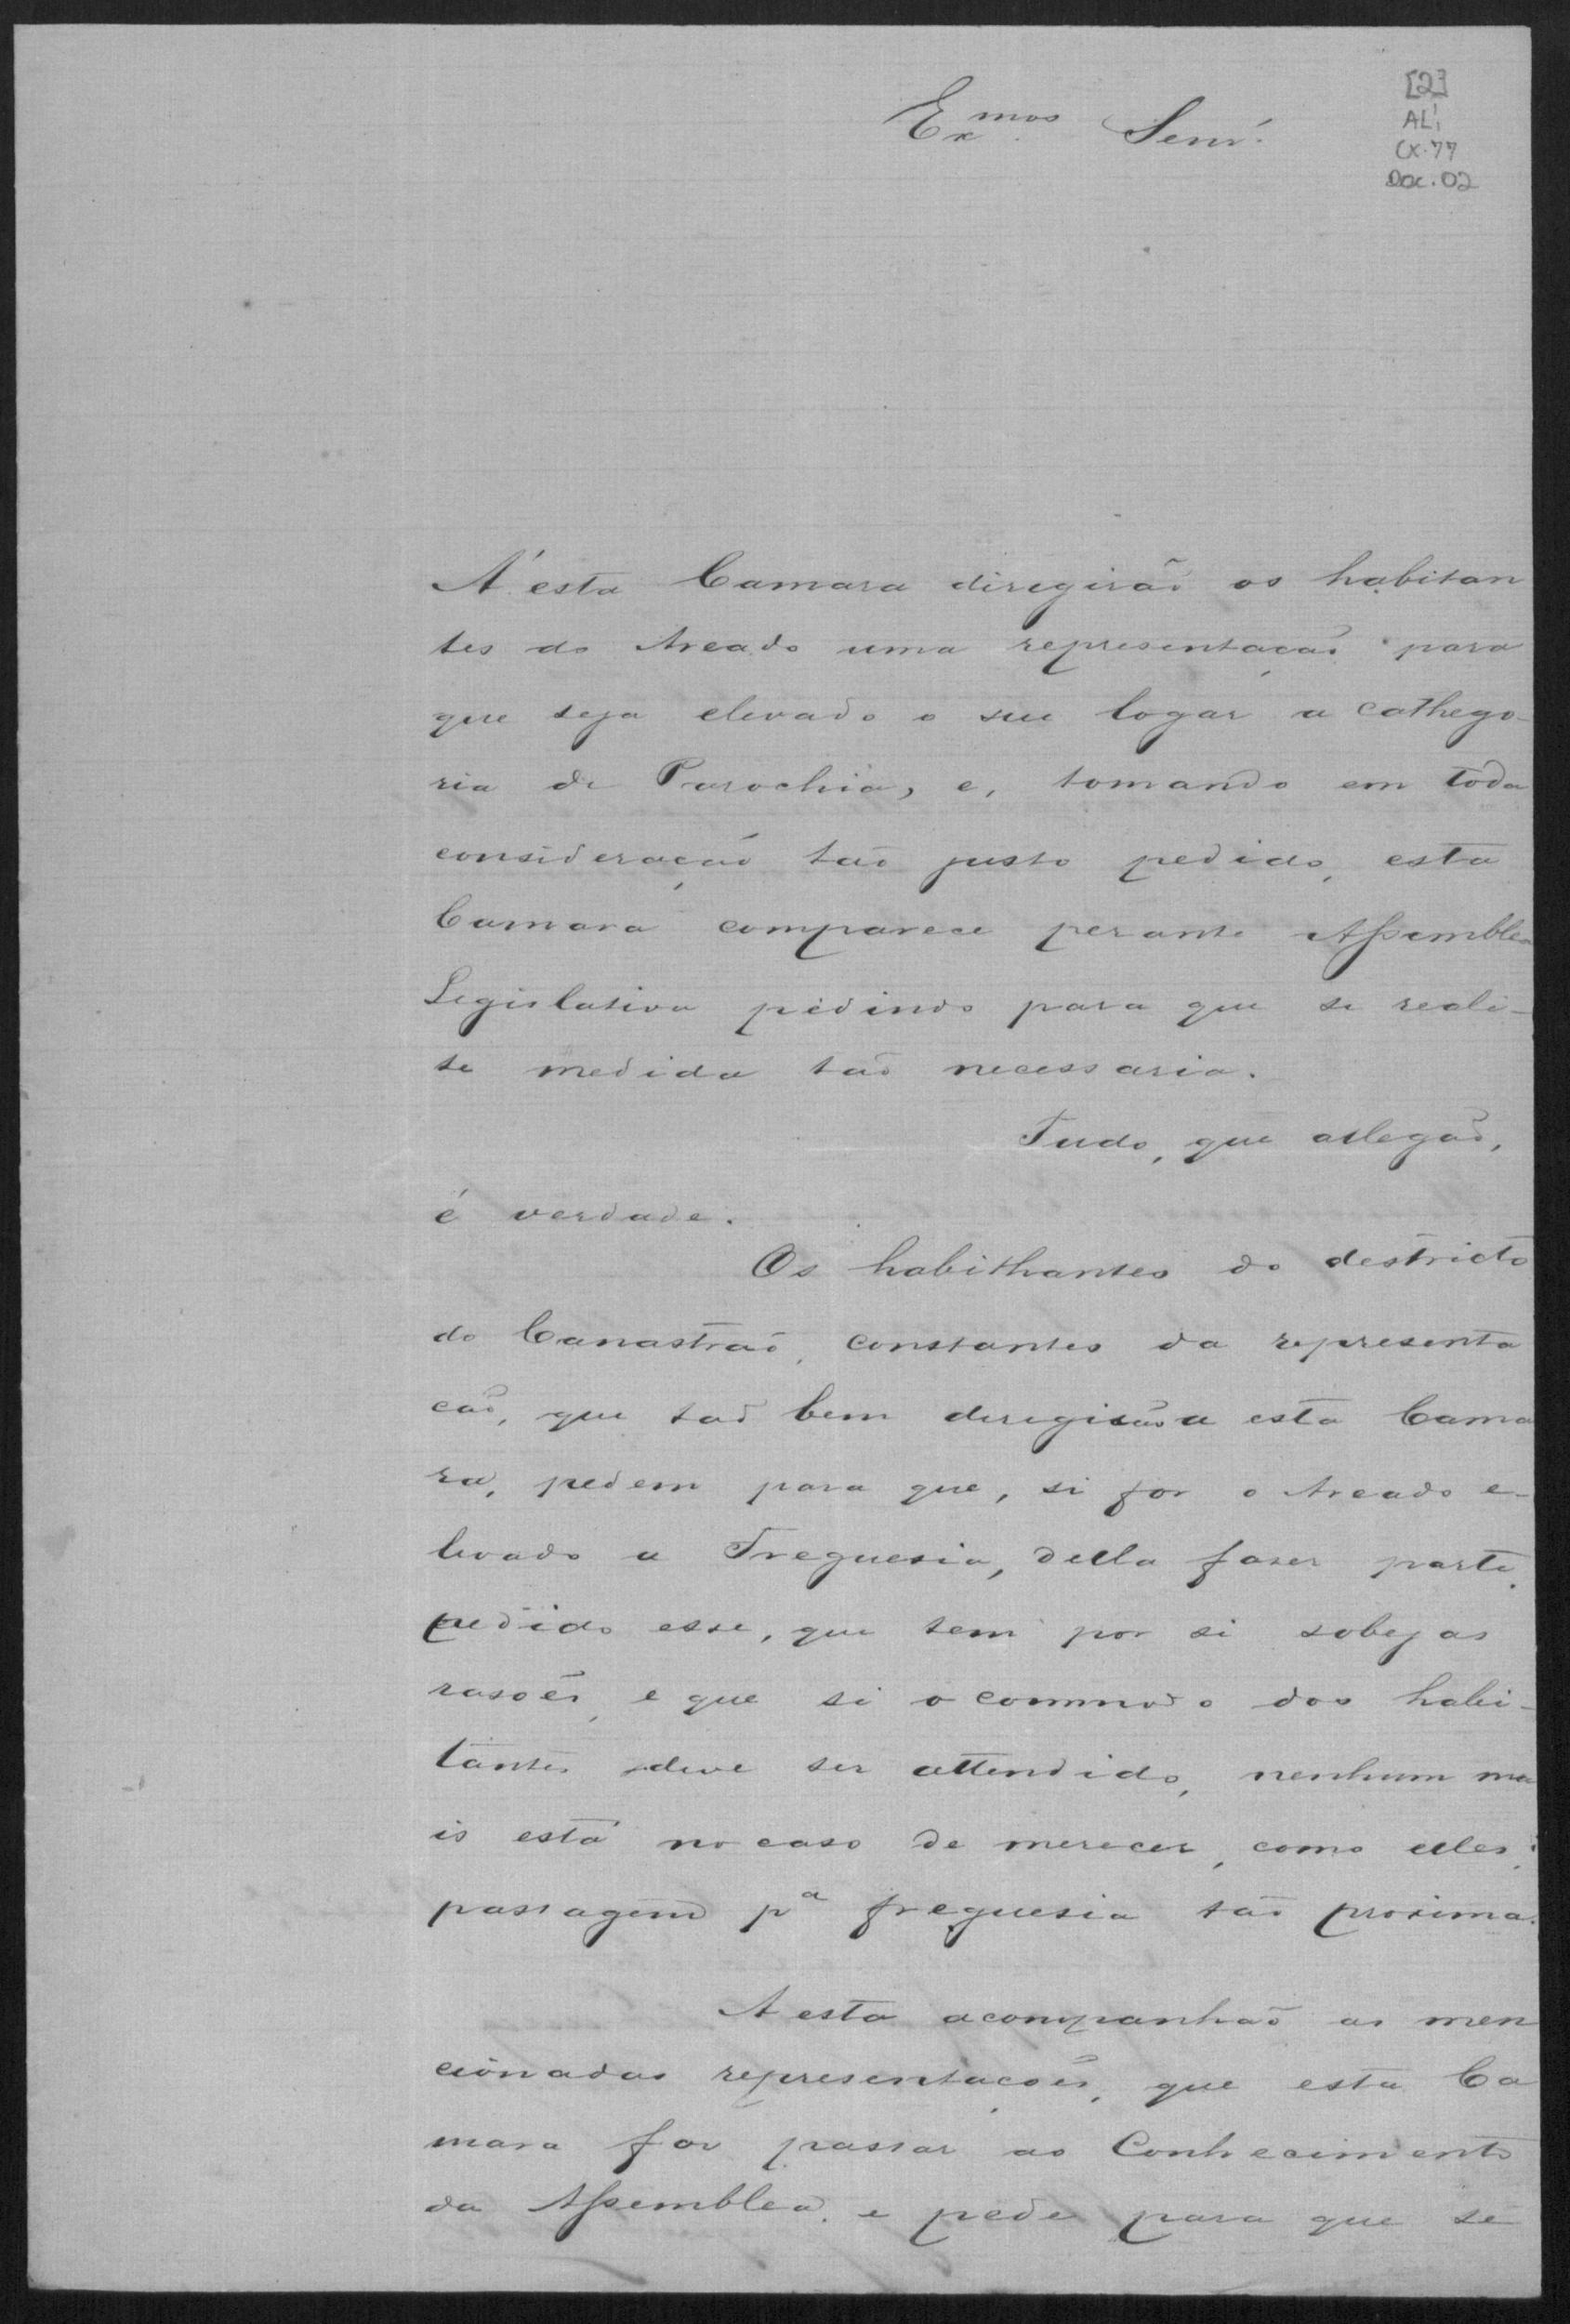 [2]
AL1
CX.77
Doc. 02
Ex.mos Senr.
A' esta Camara diregirão os habitan
tes do Areado uma representação para
que seja elevado o seu logar a cathego-
ria de Parochia, e, tomando em toda
consideração tão justo pedido, esta
Camara comparece perante Assemblea
Legislativa pedindo para que se reali-
se medida tão necessaria.
Tudo, que allegão,
é verdade.
Os habithantes do destricto
do Canastrão, constantes da representa
ção, que tão bem diregirão a esta Cama
ra, pedem para que, si for o Areado e-
levado a Freguesia, della faser parte,
pedido esse, que tem por si sobejas
rasões, e que si o commodo dos habi-
tantes deve ser attendido, nenhum ma
is está no caso de merecer, como elles:
passagem pa freguesia tão proxima.
A esta acompanhão as men
cionadas representações, que esta Ca
mara faz passar ao Conhecimento
da Assemblea, e pede para que se